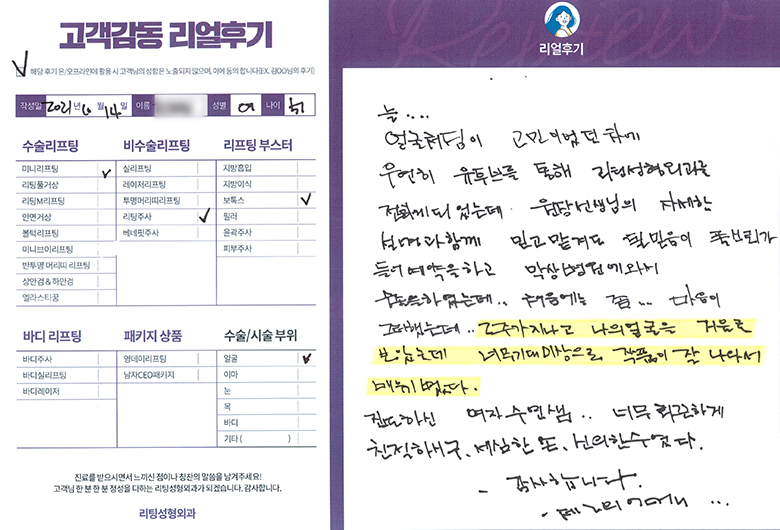 고객감동 리얼후기
해당 후기 온/오프라인에 활용 시 고객님의 성함은 노출되지 않으며, 이에 동의 합니다 (EX. 김OO님의 후기)
작성일 2021년 6월 14일 이름 성별 여 나이
수술리프팅
미니리프팅
리팅풀거상
리팅M리프팅
안면거상
볼턱리프팅
미니브이리프팅
반투명 머리띠 리프팅
상안검 & 하안검
엘라스티꿈
비수술리프팅
실리프팅
레이저리프팅
투명머리띠리프팅
리팅주사
베네핏주사
리프팅 부스터
지방흡입
지방이식
보톡스
필러
윤곽주사
피부주사
바디 리프팅
바디주사
바디실리프팅
바디레이저
패키지 상품
영데이리프팅
남자CEO패키지
수술/시술 부위
얼굴
이마
눈
목
바디
기타 ( )
진료를 받으시면서 느끼신 점이나 칭찬의 말씀을 남겨주세요!
고객님 한 분 한 분 정성을 다하는 리팅성형외과가 되겠습니다. 감사합니다.
리팅성형외과
Review
리얼후기
늘....
얼굴처짐이 고민이었던차에
우연히 유투브를 통해 리팅성형외과를
전화케되었는데 원장선생님의 자세한
설명과함께 믿고맡겨도 될믿음이
들어예약을하고 막상병원에와서
수술을하였는데.. 처음에는 좀... 마음이
그랬는데.. 2주가지나고 나의얼굴을 거울로
보았는데 너무기대이상으로, 작품이 잘 나와서
친절하시구, 세심한 또, 신의한수였다.
- 감사합니다.